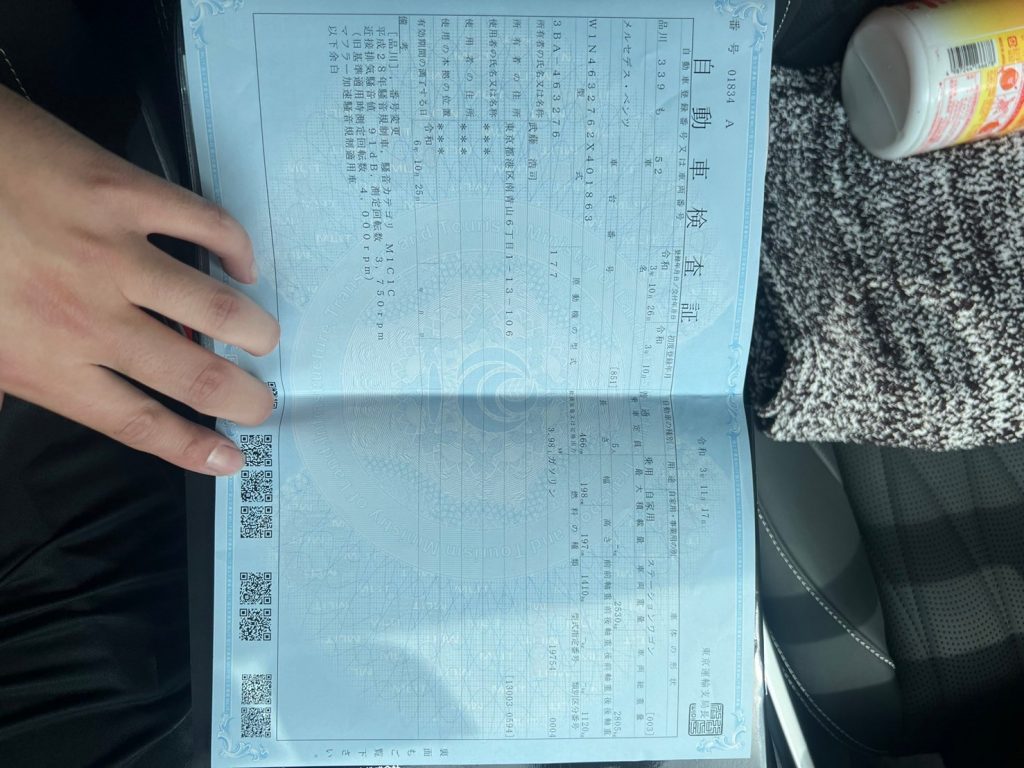 番号 01834 A
自動車検査証
令和 3年 11月 17日
東京運輸支局長
自動車登録番号又は車両番号
登録年月日/交付年月日
初度登録年月
自動車の種別
用途
自家用・事業用の別
車体の形状
品川 339 も 52
令和 3年 10月 26日
令和 3年 10月
普通
乗用
自家用
ステーションワゴン
[003]
車名
乗車定員
最大積載量
車両重量
車両総重量
メルセデス・ベンツ
[851]
5人
2530kg
2805kg
車台番号
長さ
幅
高さ
前前軸重
前後軸重
後前軸重
後後軸重
W1N4632762X401863
466cm
198cm
197cm
1410kg
1120kg
型式
原動機の型式
燃料の種類
型式指定番号
類別区分番号
3BA-463276
177
3.98
ガソリン
19754
0004
所有者の氏名又は名称
武藤 浩司
所有者の住所
東京都港区南青山6丁目1-13-106
[13003-0594]
使用者の氏名又は名称
***
使用者の住所
***
使用の本拠の位置
***
有効期間の満了する日
令和 6年 10月 25日
備考
[品川], 番号変更
平成28年騒音規制車, 騒音カテゴリ M1C1C
近接排気騒音値 91dB, 測定回転数 3,750rpm
(旧基準適用時測定回転数 4,000rpm)
マフラー加速騒音規制適用車
以下余白
裏面もご覧下さい。